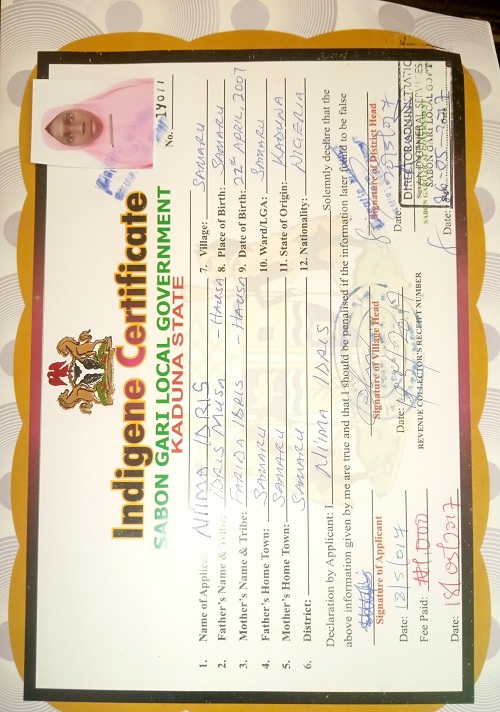 No. 19011
Indigene Certificate
SABON GARI LOCAL GOVERNMENT
KADUNA STATE
1. Name of Applica NIIMA IDRIS
2. Father's Name & Tribe: IDRIS MUSA - HAUSA
3. Mother's Name & Tribe: FARIDA IDRIS - HAUSA
4. Father's Home Town: SAMARU
5. Mother's Home Town: SAMARU
6. District: SAMARU
7. Village: SAMARU
8. Place of Birth: SAMARU
9. Date of Birth: 22nd APRIL, 2007
10. Ward/LGA: SAMARU
11. State of Origin: KADUNA
12. Nationality: NIGERIA
Declaration by Applicant: I, NIIMA IDRIS Solemnly declare that the
above information given by me are true and that I should be penalised if the information later found to be false
Signature of Applicant
Date: 18/5/017
Signature of Village Head
Date:
Signature of District Head
Date:
Fee Paid: ₦1,000
REVENUE COLLECTOR'S RECEIPT NUMBER
Date: 18/05/2017
DIRECTOR ADMINISTRATIO
AND GENERAL SERVICES
SABON GARI LOCAL GOV'T
Date: